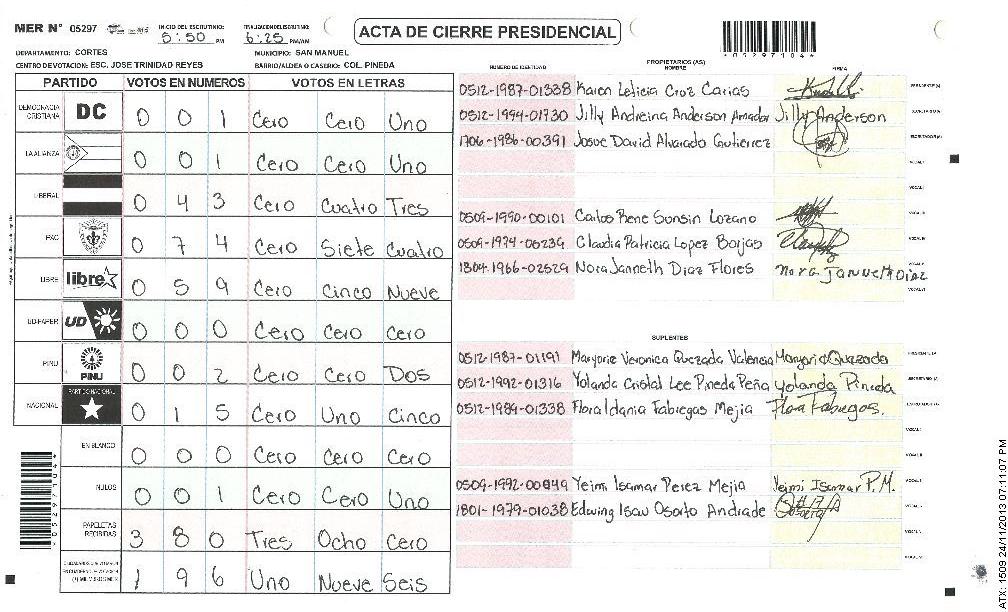 MER Nº 05297
INICIO DEL ESCRUTINIO: 5:50 PM
FINALIZACION ESCRUTINIO: 6:25 PM/AM
ACTA DE CIERRE PRESIDENCIAL
05297104
DEPARTAMENTO: CORTES MUNICIPIO: SAN MANUEL
CENTRO DE VOTACION: ESC. JOSE TRINIDAD REYES BARRIO/ALDEA O CASERIO: COL. PINEDA
PARTIDO VOTOS EN NUMEROS VOTOS EN LETRAS
DEMOCRACIA CRISTIANA DC 0 0 1 Cero Cero Uno
LA ALIANZA 0 0 1 Cero Cero Uno
LIBERAL 0 4 3 Cero Cuatro Tres
PAC 0 7 4 Cero Siete Cuatro
LIBRE libre 0 5 9 Cero Cinco Nueve
UD-FAPER UD 0 0 0 Cero Cero Cero
PINU PINU 0 0 2 Cero Cero Dos
NACIONAL PARTIDO NACIONAL 0 1 5 Cero Uno Cinco
EN BLANCO 0 0 0 Cero Cero Cero
NULOS 0 0 1 Cero Cero Uno
PAPELETAS RECIBIDAS 3 8 0 Tres Ocho Cero
1 9 6 Uno Nueve Seis
NUMERO DE IDENTIDAD PROPIETARIOS (AS) NOMBRE FIRMA
0512-1987-01338 Karen Leticia Cruz Carias PRESIDENTE (A)
0512-1994-01730 Jilly Andreina Anderson Amador Jilly Anderson SECRETARIO (A)
1706-1986-00391 Josue David Alvarado Gutierrez ESCRUTADOR (A)
VOCAL I
VOCAL II
0509-1990-00101 Carlos Rene Sunsin Lozano VOCAL III
0509-1974-00239 Claudia Patricia Lopez Borjas VOCAL IV
1804-1966-02529 Nora Janneth Diaz Flores Nora JANNETH Diaz VOCAL V
VOCAL VI
SUPLENTES
0512-1987-01191 Maryorie Veronica Quezada Valencia PRESIDENTE (A)
0512-1992-01316 Yolanda Cristal Lee Pineda Peña Yolanda Pineda SECRETARIO (A)
0512-1989-01338 Flora Idania Fabregas Mejia Flora Fabregas. ESCRUTADOR (A)
VOCAL I
VOCAL II
0509-1992-00949 Yeimi Isamar Perez Mejia Yeimi Isamar P.M.
1801-1979-01038 Edwing Isau Osorto Andrade
05297104
ATX: 1509 24/11/2013 07:11:07 PM